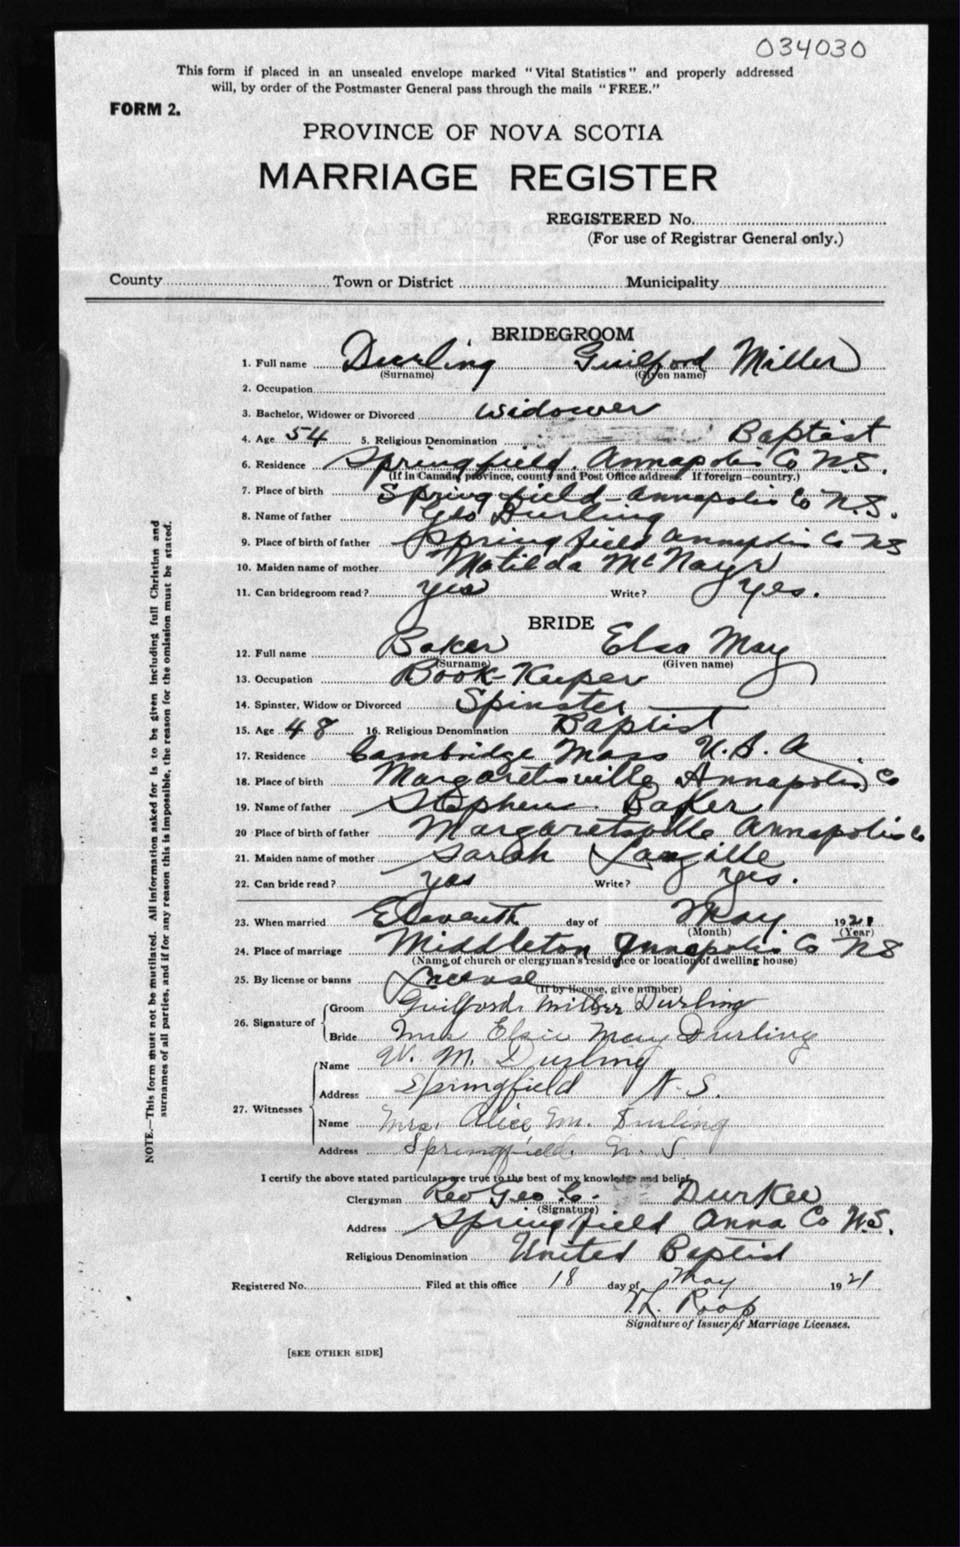 034030
This form if placed in an unsealed envelope marked "Vital Statistics" and properly addressed
will, by order of the Postmaster General pass through the mails "FREE."
FORM 2.
PROVINCE OF NOVA SCOTIA
MARRIAGE REGISTER
REGISTERED No.
(For use of Registrar General only.)
County Town or District Municipality
BRIDEGROOM
1. Full name Durling Guilford Miller
(Surname) (Given name)
2. Occupation
3. Bachelor, Widower or Divorced widower
4. Age 54 5. Religious Denomination Baptist
6. Residence Springfield Annapolis Co N.S.
(If in Canada, province, county and Post Office address. If foreign—country.)
7. Place of birth Springfield - Annapolis Co N.S.
8. Name of father Geo Durling
9. Place of birth of father Springfield Annapolis Co NS
10. Maiden name of mother Matilda McNayr
11. Can bridegroom read? yes Write? Yes.
BRIDE
12. Full name Baker Elsa May
(Surname) (Given name)
13. Occupation Book-Keeper
14. Spinster, Widow or Divorced Spinster
15. Age 48 16. Religious Denomination Baptist
17. Residence Cambridge Mass U.S.A
18. Place of birth Margaretsville Annapolis Co
19. Name of father Stephen Baker
20 Place of birth of father Margaretsville Annapolis Co
21. Maiden name of mother Sarah Langille
22. Can bride read? yes Write? yes.
23. When married Eleventh day of May. 1921
(Month) (Year)
24. Place of marriage Middleton Annapolis Co NS
(Name of church or clergyman's residence or location of dwelling house)
25. By license or banns License
(If by license, give number)
26. Signature of Groom Guilford Miller Durling
Bride Mrs Elsie May Durling
27. Witnesses Name W. M. Durling
Address Springfield N.S.
Name Mrs. Alice M. Durling
Address Springfield. N.S.
I certify the above stated particulars are true to the best of my knowledge and belief.
Clergyman Rev Geo C. Durkee
(Signature)
Address Springfield Anna Co N.S.
Religious Denomination United Baptist
Registered No. Filed at this office 18 day of May 1921
Roop
Signature of Issuer of Marriage Licenses.
[SEE OTHER SIDE]
NOTE.—This form must not be mutilated. All information asked for is to be given including full Christian and
surnames of all parties, and if for any reason this is impossible, the reason for the omission must be stated.